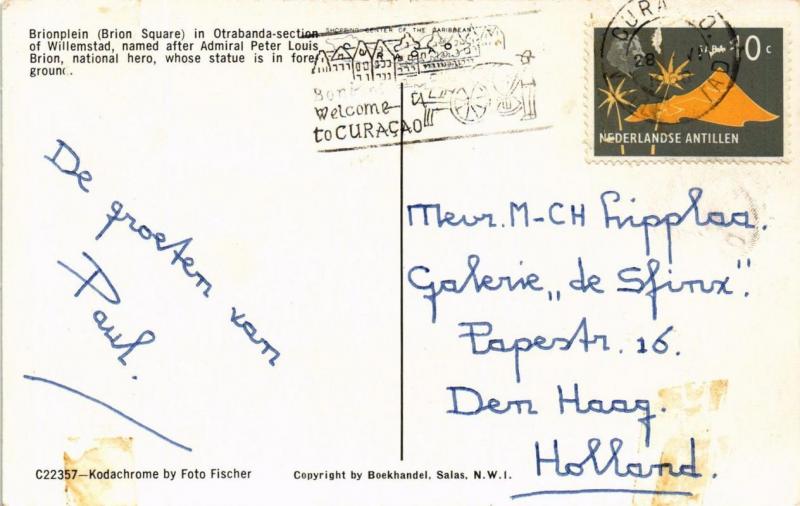 Brionplein (Brion Square) in Otrabanda-section
of Willemstad, named after Admiral Peter Louis
Brion, national hero, whose statue is in fore-
ground.
SHOPPING CENTER OF THE CARIBBEAN
Welcome
to CURAÇAO
CURA
28
SABA 10 c
NEDERLANDSE ANTILLEN
De groeten van
Paul.
Mevr. M-CH Lipplaa.
Galerie „de Sfinx".
Papestr. 16.
Den Haag.
Holland.
C22357—Kodachrome by Foto Fischer
Copyright by Boekhandel, Salas, N.W.I.